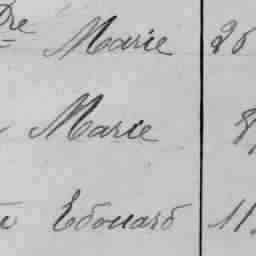 Dre Marie 26
Marie 8
Edouard 11